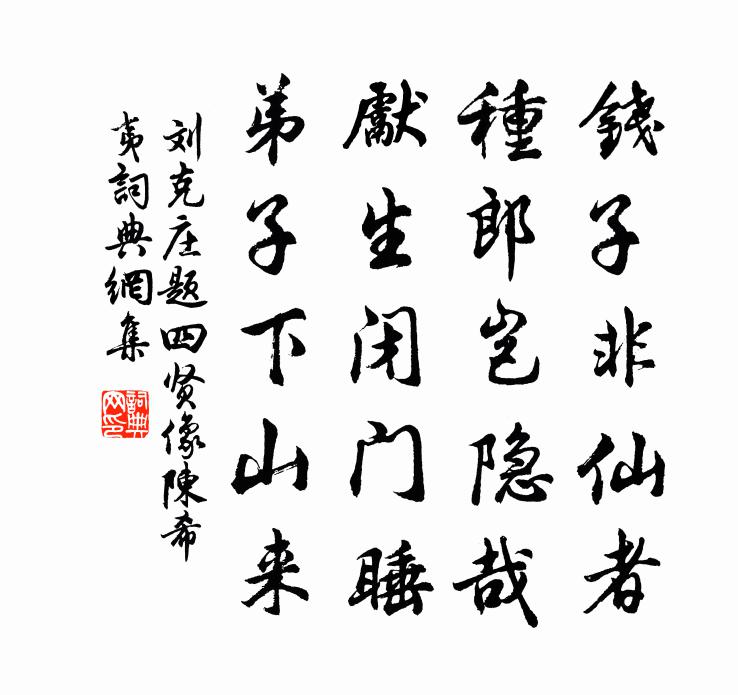 錢子非仙者
種郎岂隐哉
獻生闭门睡
弟子下山来
刘克庄题四贤像陳希
夷詞典網集
詞典
网印